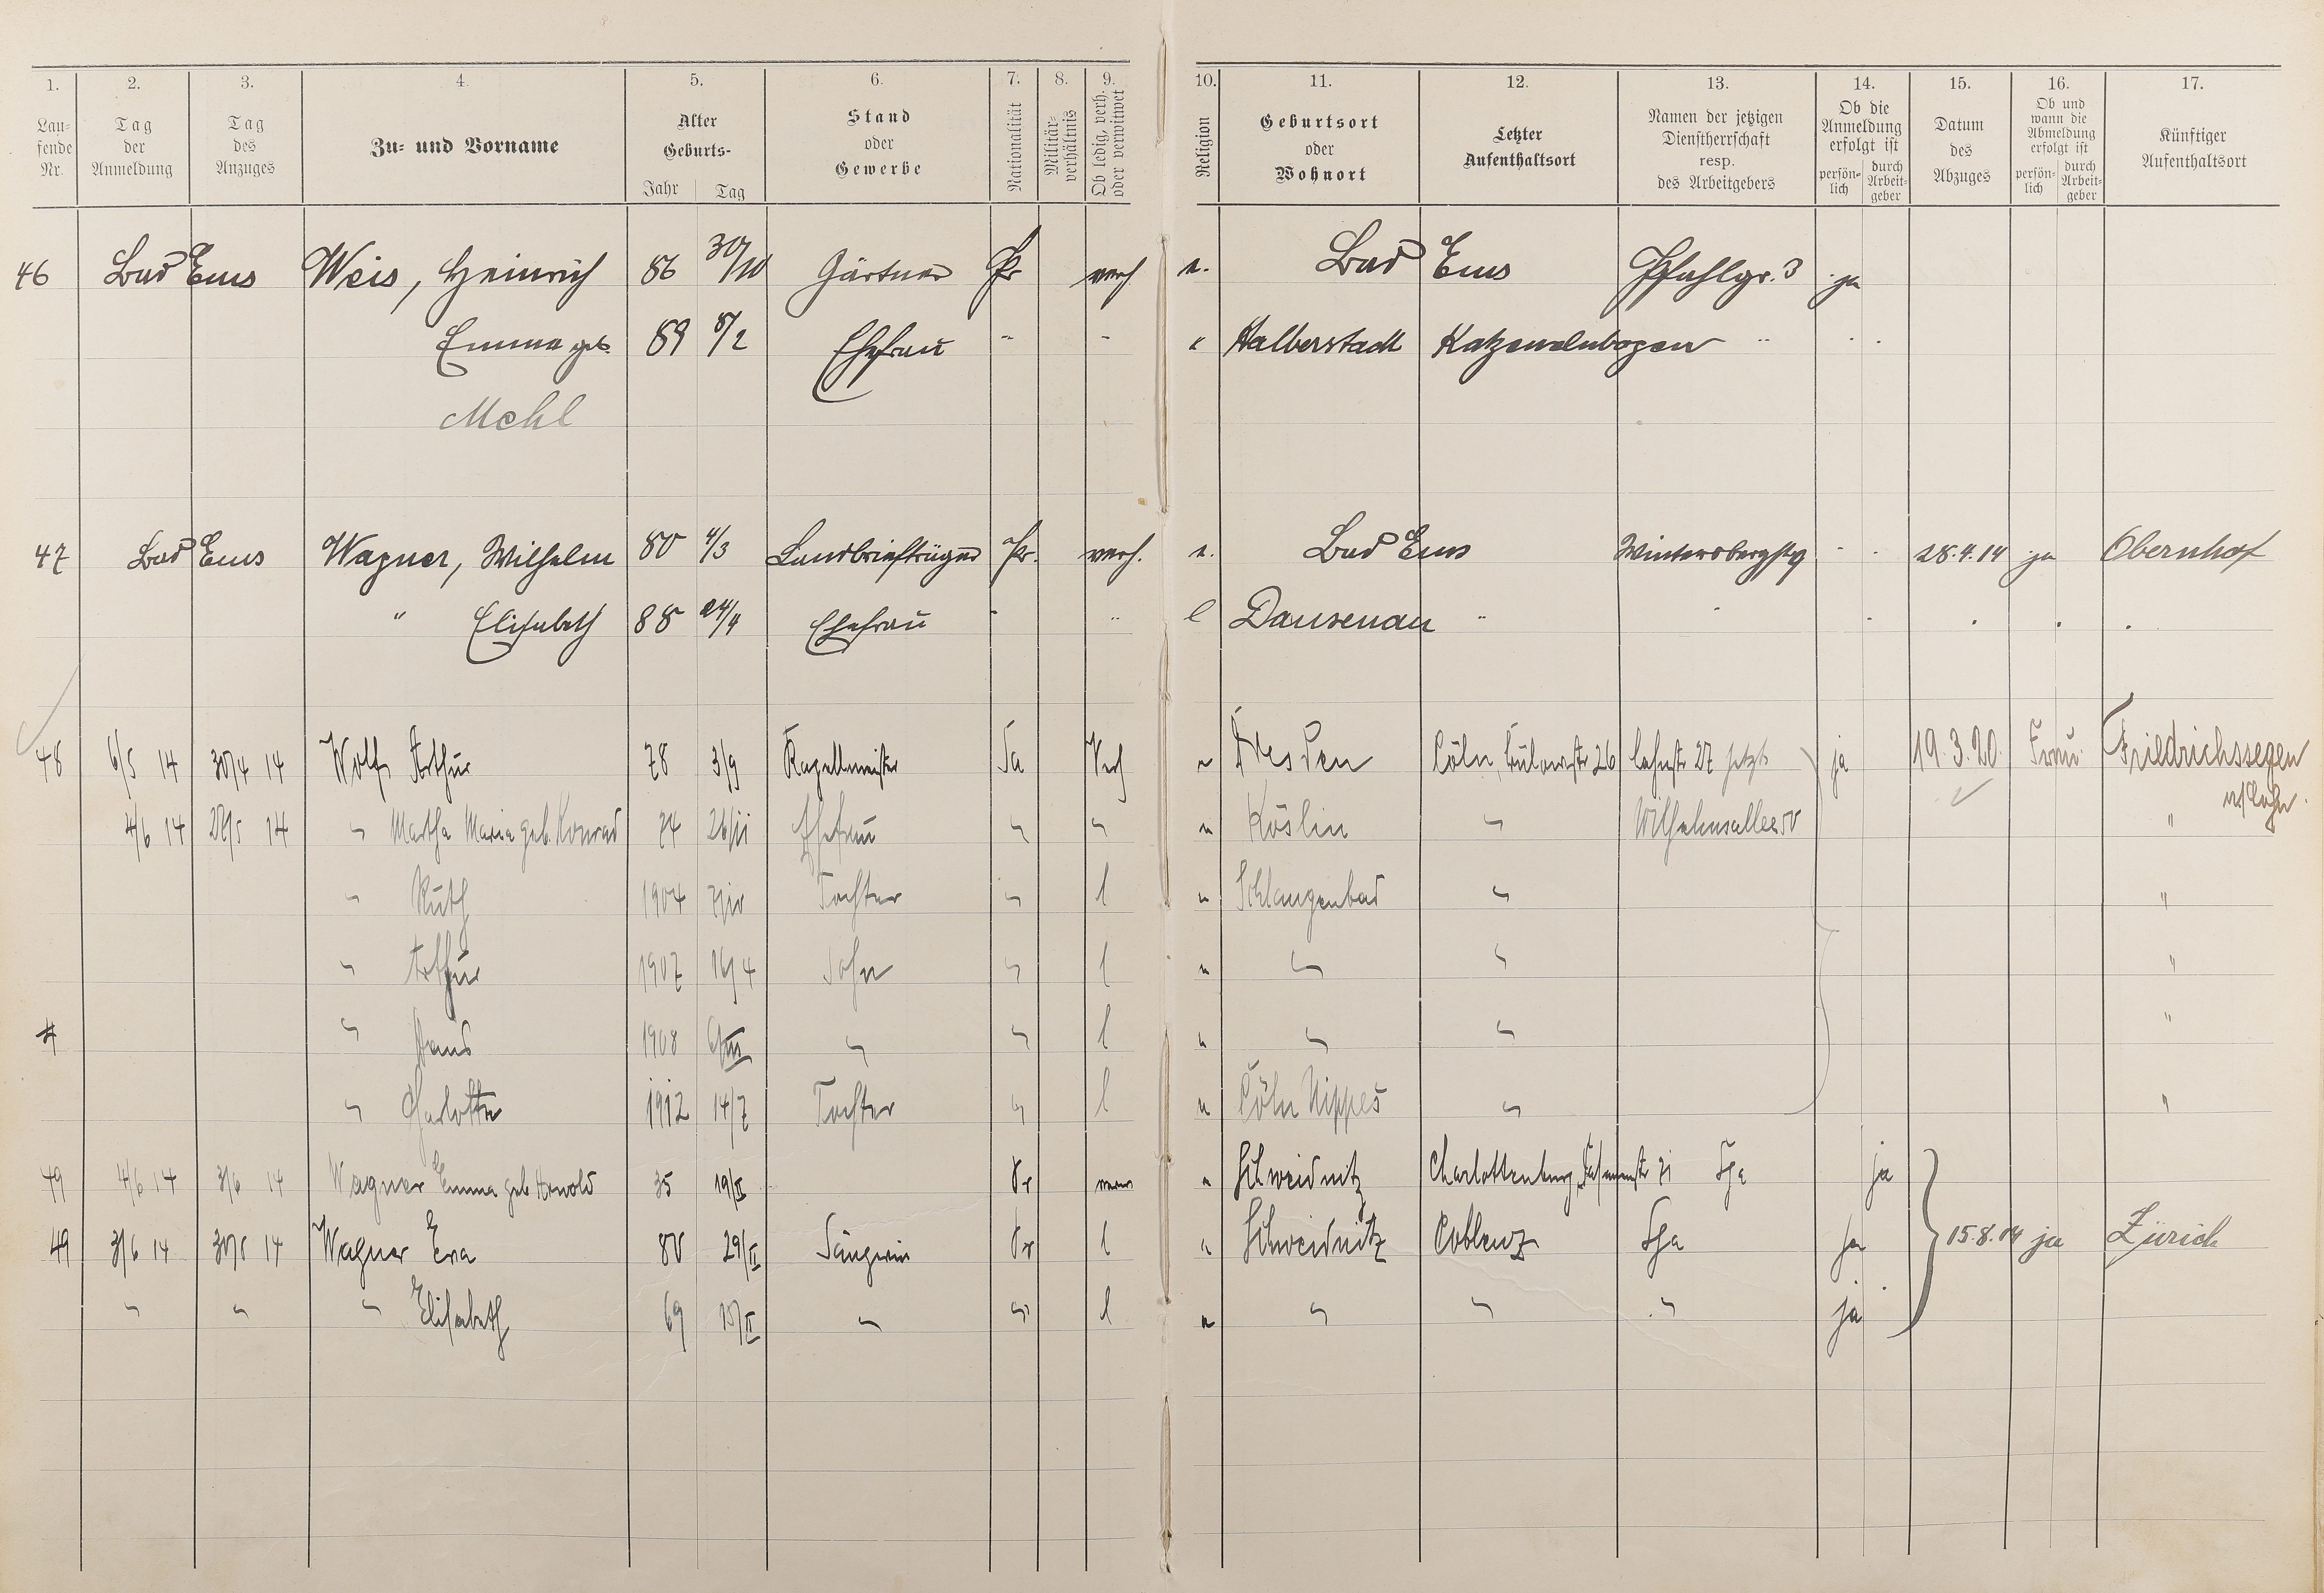 1. 2. 3. 4. 5. 6. 7. 8. 9. 10. 11. 12. 13. 14. 15. 16. 17.
Lau-
fende
Nr.
Tag
der
Anmeldung
Tag
des
Anzuges
Zu- und Vorname
Alter
Geburts-
Jahr Tag
Stand
oder
Gewerbe
Nationalität
Militär-
verhältnis
Ob ledig, verh.
oder verwitwet
Religion
Geburtsort
oder
Wohnort
Letzter
Aufenthaltsort
Namen der jetzigen
Dienstherrschaft
resp.
des Arbeitgebers
Ob die
Anmeldung
erfolgt ist
persön-
lich
durch
Arbeit-
geber
Datum
des
Abzuges
Ob und
wann die
Abmeldung
erfolgt ist
persön-
lich
durch
Arbeit-
geber
Künftiger
Aufenthaltsort
46 Bad Ems Weis, Heinrich 86 30/10 Gärtner Pr verh. Bad Ems Pfahlgr. 3 ja
Emma geb. 89 8/2 Ehefrau " " Halberstadt Katzenelnbogen "
Mehl
47 Bad Ems Wagner, Wilhelm 80 4/3 Landbriefträger Pr. verh. Bad Ems 28.4.14 ja Obernhof
" Elisabeth 88 24/4 Ehefrau " " Dausenau "
48 6/5 14 30/4 14 Wolf Arthur 78 3/9 Kapellmeister Sa Verh Dresden Cöln, Bülowstr 26 Lahnstr 27 jetzt ja 19.3.20. Frau Friedrichssegen
a/Lahn.
4/6 14 14 " Martha Maria geb. Konrad 74 26/11 Ehefrau " " Köslin " Wilhelmsallee "
" Ruth 1904 Tochter " l Schlangenbad " "
" Arthur 1907 Sohn " l " " "
" Hans 1908 " " l " " "
" Charlotte 1912 14/7 Tochter " l Cöln Nippes " "
49 4/6 14 3/6 14 Wagner Emma geb Arnold 35 19/II Pr Schweidnitz Charlottenburg ja
49 3/6 14 14 Wagner Eva 80 29/II Sängerin Pr l Schweidnitz Coblenz ja 15.8.14 ja Zürich
" " " Elisabeth 69 " " l " " " ja